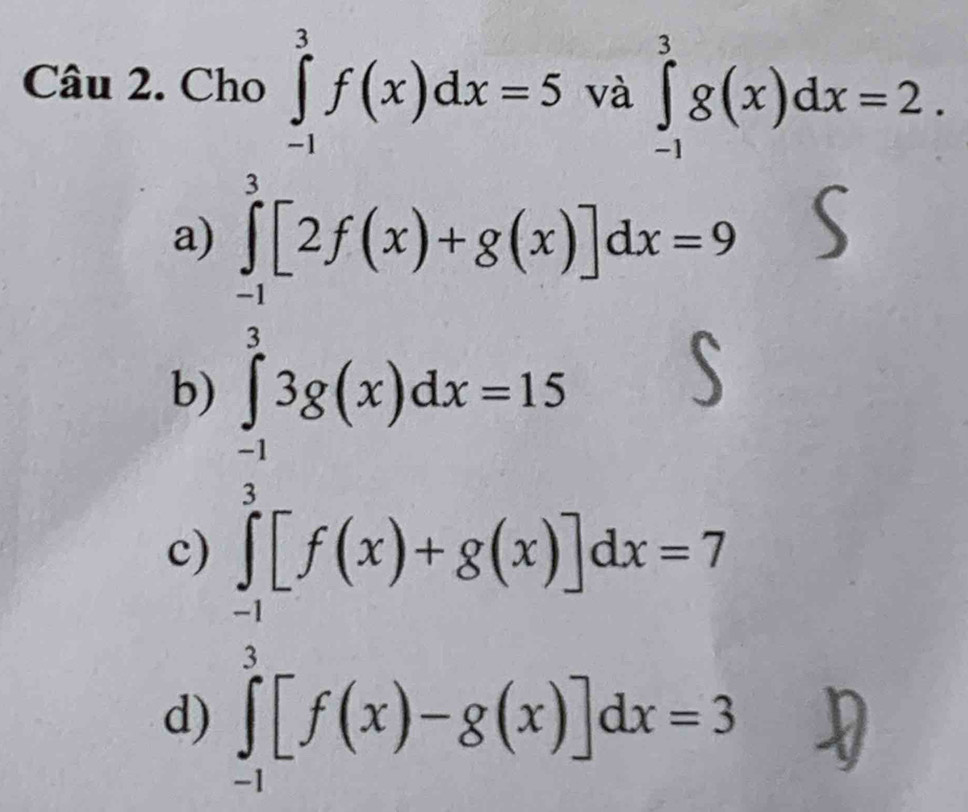 Câu 2. Cho $\int_{-1}^{3} f(x)dx = 5$ và $\int_{-1}^{3} g(x)dx = 2$.
a) $\int_{-1}^{3} [2f(x)+g(x)]dx = 9$ S
b) $\int_{-1}^{3} 3g(x)dx = 15$ S
c) $\int_{-1}^{3} [f(x)+g(x)]dx = 7$
d) $\int_{-1}^{3} [f(x)-g(x)]dx = 3$ Đ